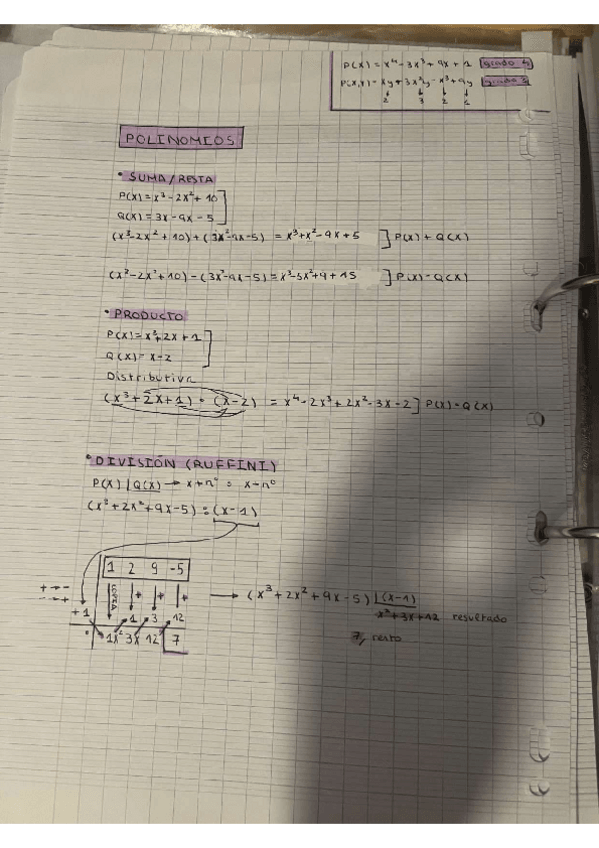 P(X) = x⁴ - 3x³ + 9x + 1 grado 4
P(X,Y) = xy + 3x²y - x³ + 9y grado 3
2 3 2 1
POLINOMIOS
• SUMA/RESTA
P(X) = x³ - 2x² + 10
Q(X) = 3x - 9x - 5
(x³ - 2x² + 10) + (3x² - 9x - 5) = x³ + x² - 9x + 5 ] P(X) + Q(X)
(x³ - 2x² + 10) - (3x² - 9x - 5) = x³ - 5x² + 9 + 15 ] P(X) - Q(X)
• PRODUCTO
P(X) = x³ + 2x + 1
Q(X) = x - 2
Distributiva
(x³ + 2x + 1) · (x - 2) = x⁴ - 2x³ + 2x² - 3x - 2 ] P(X) · Q(X)
• DIVISIÓN (RUFFINI)
P(X) | Q(X) → x + nº o x - nº
(x³ + 2x² + 9x - 5) : (x - 1)
1 2 9 -5
+ → -
- → +
SUMA + + +
→ (x³ + 2x² + 9x - 5) | (x - 1)
+1 1 3 12
x² + 3x + 12 resultado
1x² 3x 12 7
7, resto